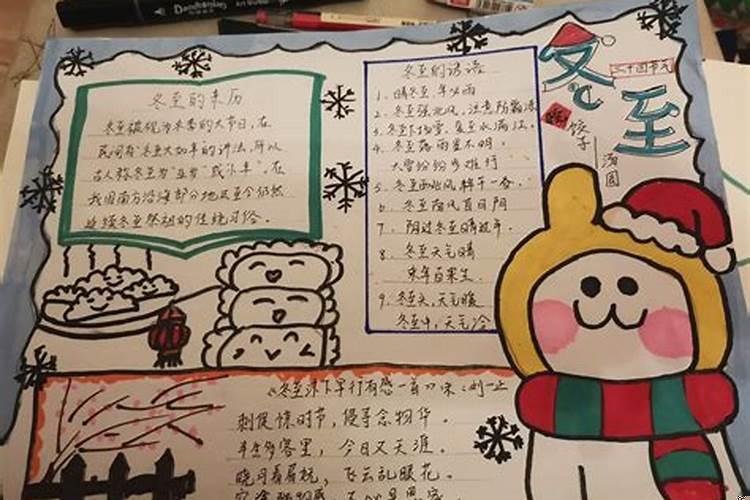 冬至
二十四节气
吃
饺子
汤圆
冬至的来历
冬至被视为冬季的大节日,在
民间有“冬至大如年”的讲法,所以
古人称冬至为“亚岁”或“小年”。在
我国南方沿海部分地区至今仍然
延续冬至祭祖的传统习俗。
冬至的谚语
1、晴冬至,年必雨
2、冬至强北风,注意防霜冻
3、冬至下场雪,夏至水满江。
4、冬至落雨星不明,
大雪纷纷步难行
5、冬至西北风,来年干一春。
6、冬至南风百日阴
7、阴过冬至晴过年。
8、冬至天气晴
来年百果生。
9、冬至头,天气暖
冬至中,天气冷
《冬至床下早行有感一首》宋:刘一止
刺促惊时节,慢寻念物华。
半生多客里,今日又天涯。
晓月看看抗,飞云乱眼花。